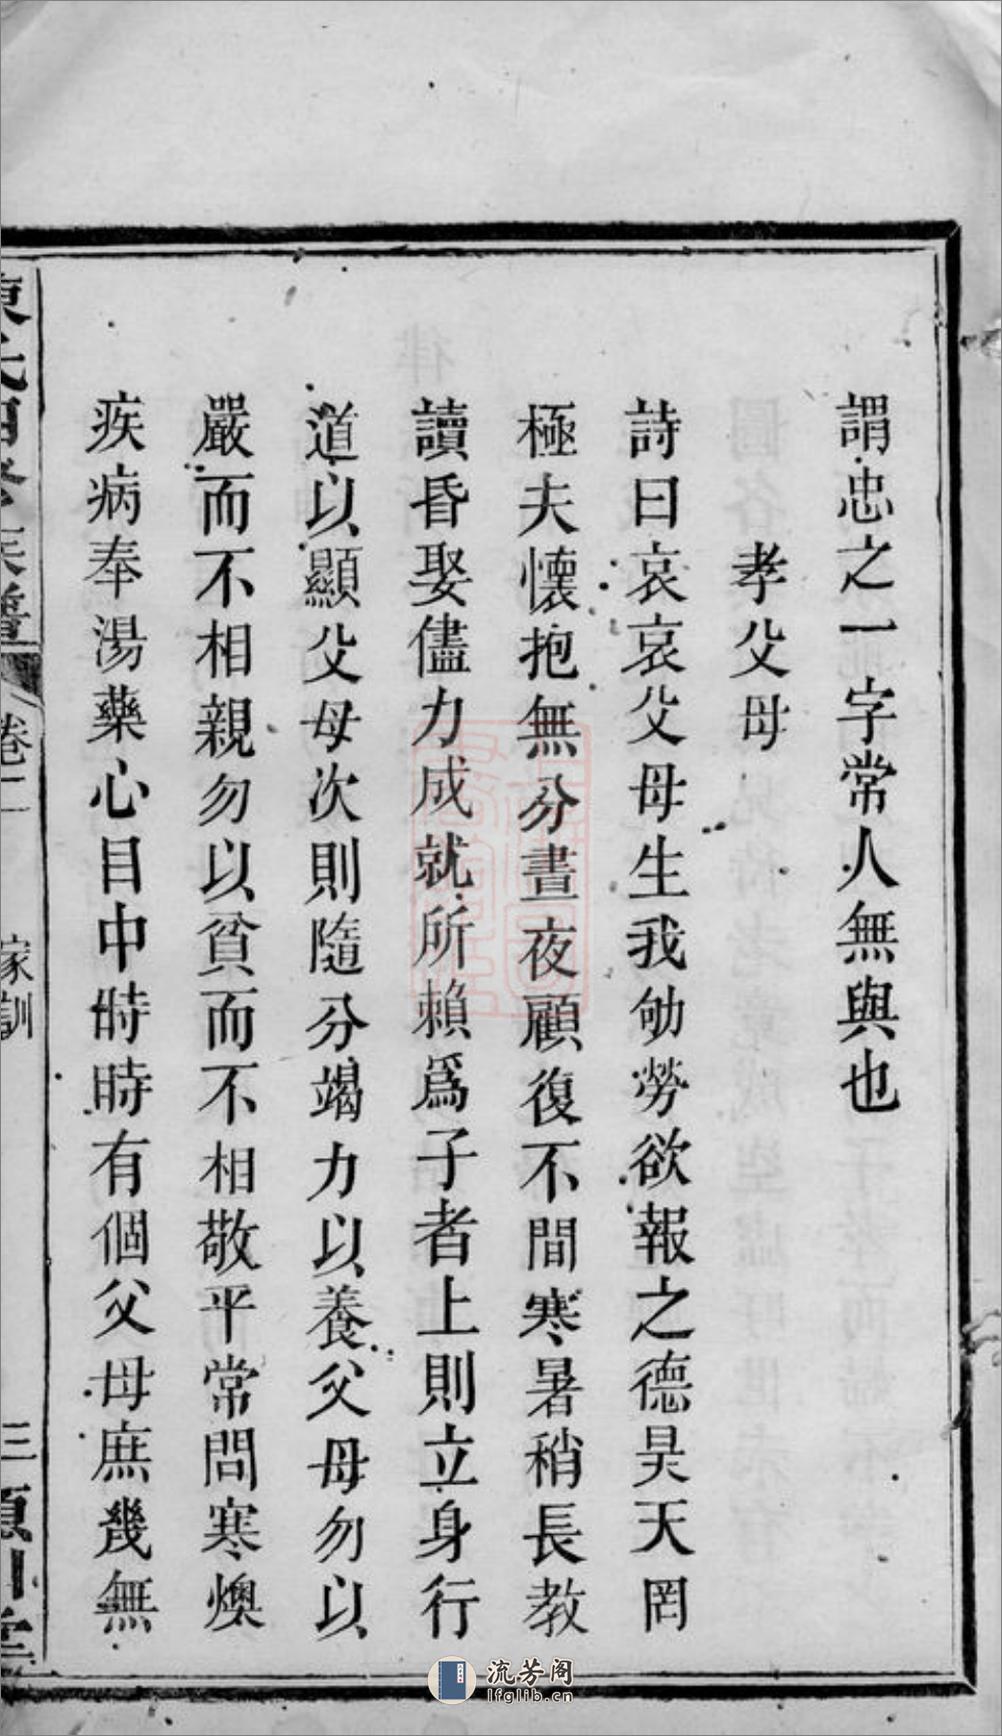 謂忠之一字常人無與也
孝父母
詩曰哀哀父母生我劬勞欲報之德昊天罔
極夫懷抱無分晝夜顧復不間寒暑稍長教
讀昏娶儘力成就所賴爲子者上則立身行
道以顯父母次則隨分竭力以養父母勿以
嚴而不相親勿以貧而不相敬平常問寒燠
疾病奉湯藥心目中時時有個父母庶幾無
卷二
家訓
三
流芳阁
lfglib.cn